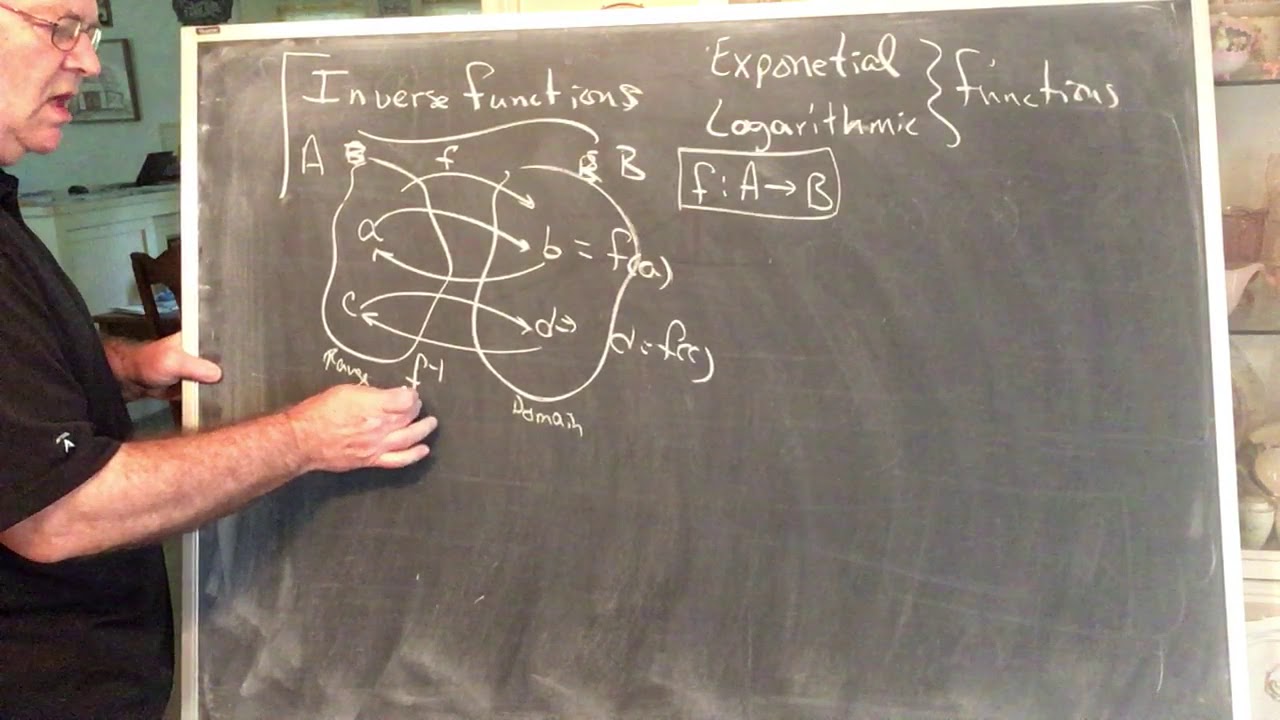 Inverse functions
Exponetial
Logarithmic
functions
A
f
B
f : A → B
a
b = f(a)
c
d
d = f(c)
Range
f⁻¹
Domain